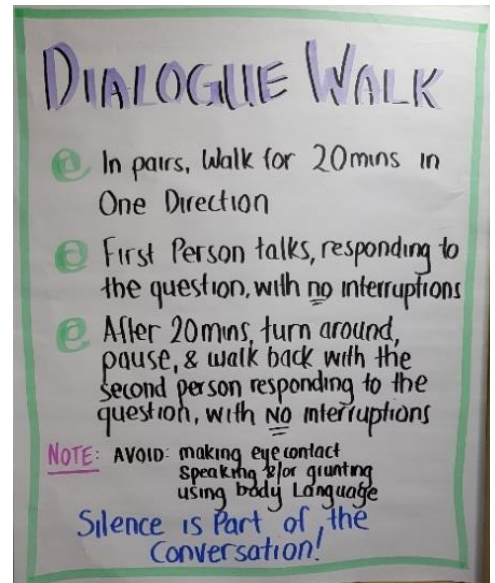 DIALOGUE WALK
In pairs, Walk for 20mins in
One Direction
First Person talks, responding to
the question, with no interruptions
After 20mins, turn around,
pause, & walk back with the
second person responding to the
question, with NO interruptions
NOTE: AVOID: making eye contact
Speaking &/or grunting
using body Language
Silence is Part of the
Conversation!